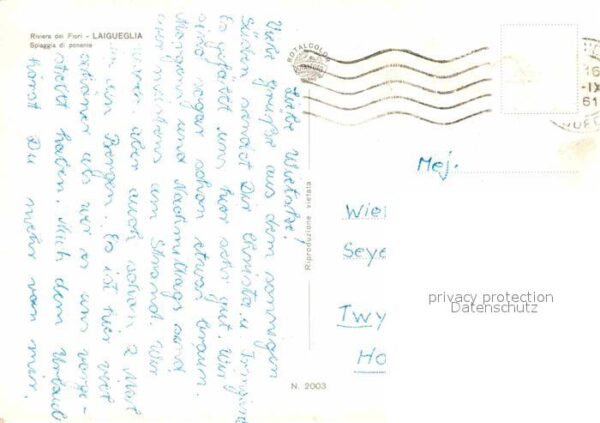 Riviera dei Fiori - LAIGUEGLIA
Spiaggia di ponente
ROTALCOLOR
16
-IX
61
Liebe Wietske!
Viele Grüße aus dem sonnigen
Süden sendet Dir Christa u.
Es gefällt uns hier sehr gut. Wir
sind sogar schon etwas braun.
Morgens und Nachmittags sind
wir am Strand. Wir
waren aber auch schon 2 Mal
in den Bergen. Es ist hier viel
schöner als wir es uns vorge-
stellt haben. Nach dem Urlaub
hörst Du mehr von mir.
Riproduzione vietata
N. 2003
Mej.
Wie
Seye
Twy
Ho
privacy protection
Datenschutz